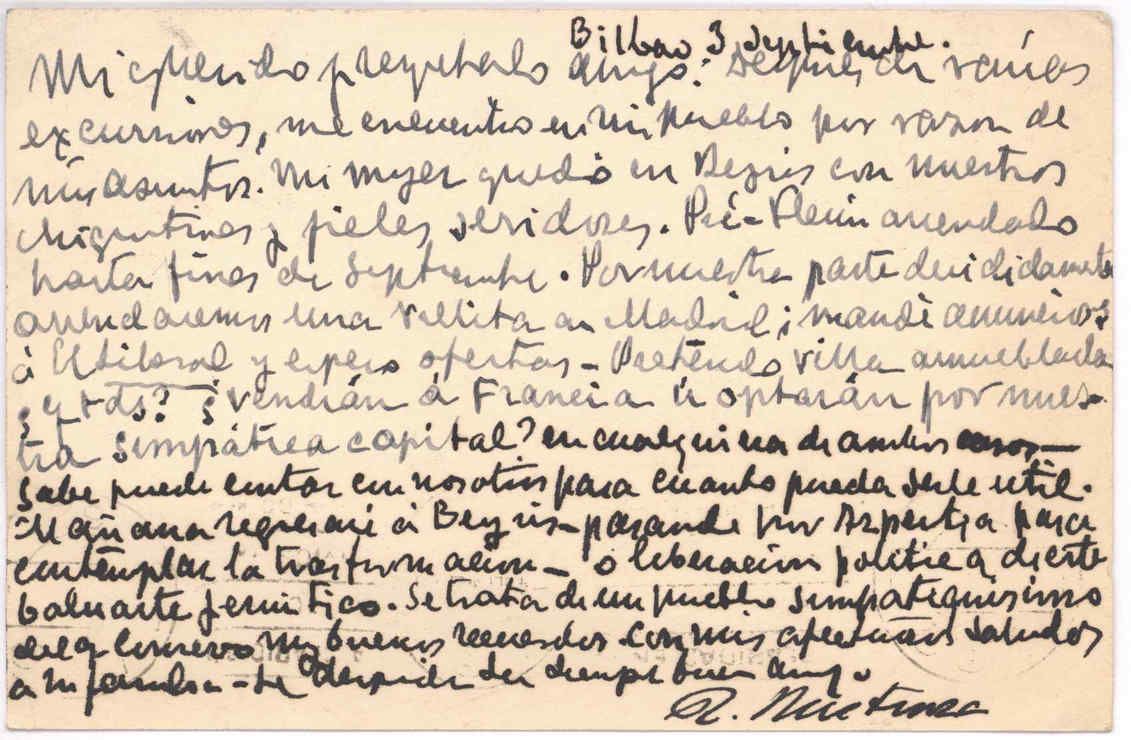 Bilbao 3 Septiembre.
Mi querido y respetado amigo: Después de varias
excursiones, me encuentro en mi pueblo por razon de
mis asuntos. Mi mujer quedó en Beyris con nuestros
chiquitines y fieles servidores. arrendado
hasta fines de Septiembre. Por nuestra parte decididamente
arrendaremos una villita en Madrid; mandé anuncios
á El Liberal y espero ofertas - Pretendo villa amueblada
¿y Vds? ¿Vendrán á Francia ú optarán por nues-
tra simpática capital? en cualquiera de ambos casos -
sabe puede contar con nosotros para cuanto pueda serle util.
Mañana regresaré á Beyris - pasando por Azpeitia para
contemplar la trasformacion - o liberacion politica de este
baluarte jesuitico. Se trata de un pueblo simpatiquisimo
del q conservo muy buenos recuerdos. con mis afectuosos saludos
a su familia - se despide su siempre buen amigo